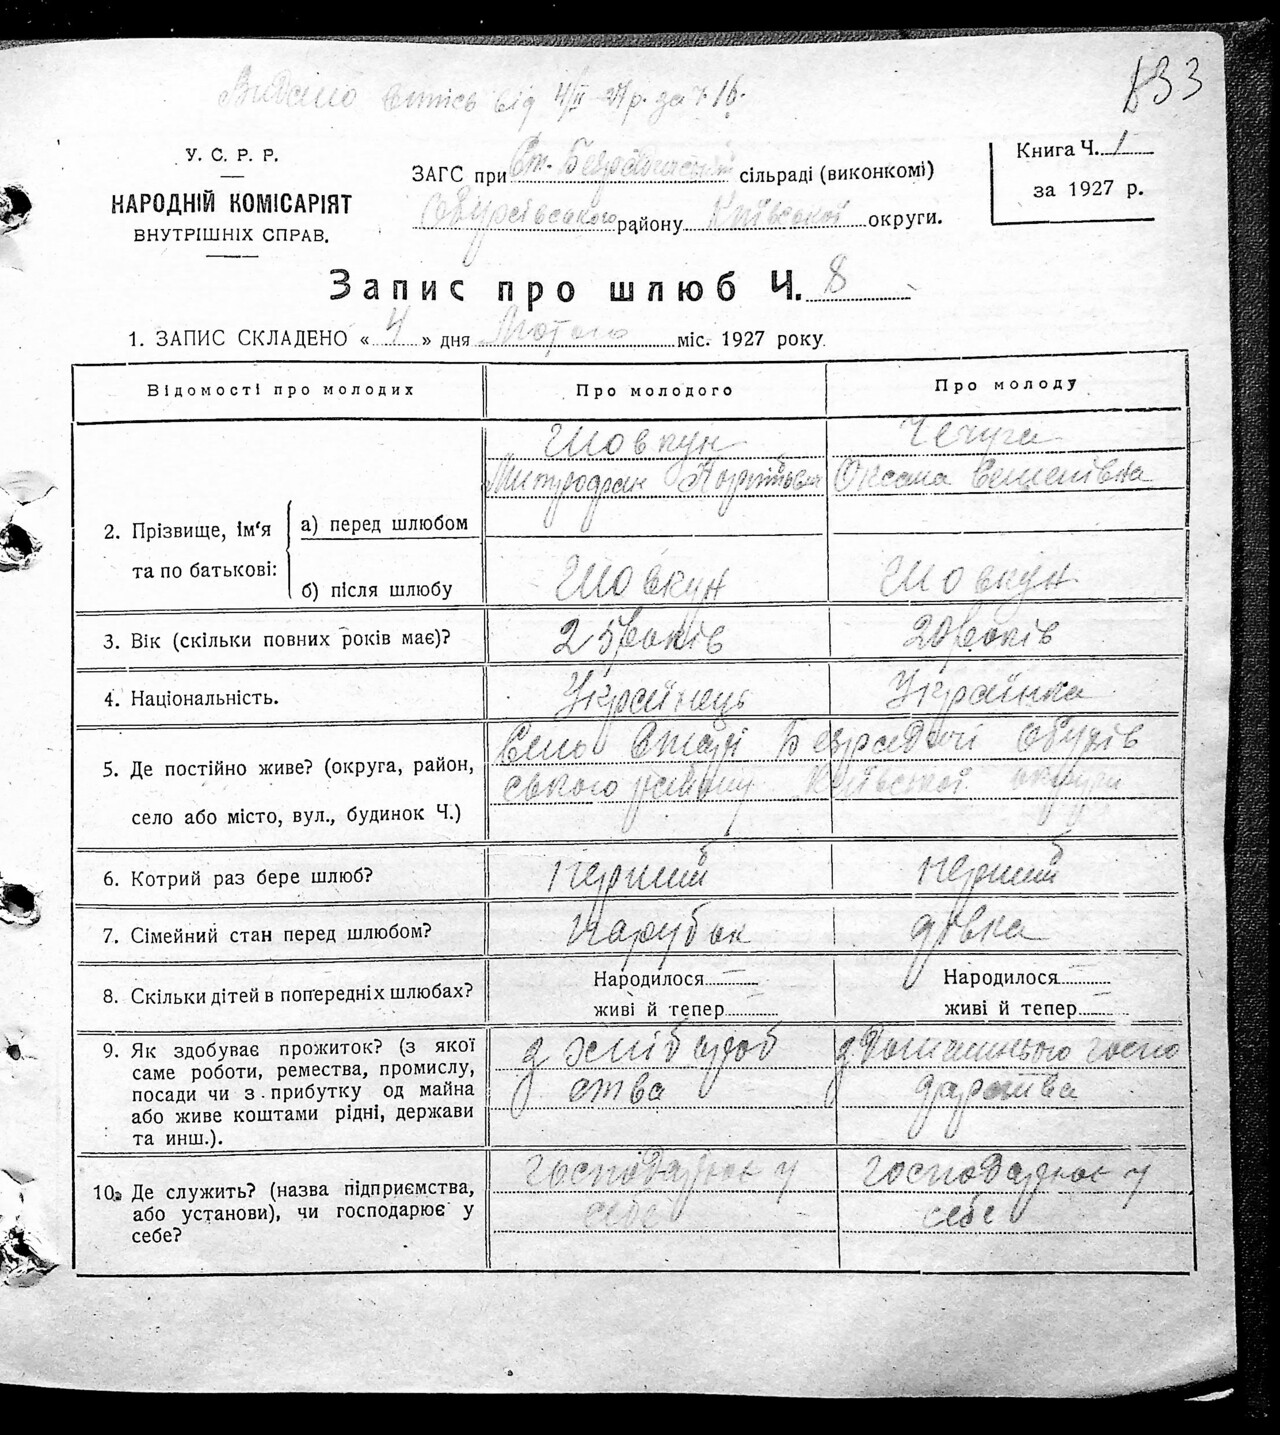 133
Видано витяг від 4/II-27 р. за ч 16.
У. С. Р. Р.
НАРОДНІЙ КОМІСАРІЯТ
ВНУТРІШНІХ СПРАВ.
ЗАГС при Ст.-Безрадичаській сільраді (виконкомі)
Обухівського району Київської округи.
Книга Ч. 1
за 1927 р.
Запис про шлюб Ч. 8
1. ЗАПИС СКЛАДЕНО « 4 » дня Лютого міс. 1927 року
Відомості про молодих
Про молодого
Про молоду
2. Прізвище, ім'я
та по батькові:
а) перед шлюбом
Шовкун
Митрофан
Чечуга
Оксана
б) після шлюбу
Шовкун
Шовкун
3. Вік (скільки повних років має)?
25 років
20 років
4. Національність.
Українець
Українка
5. Де постійно живе? (округа, район,
село або місто, вул., будинок Ч.)
Село Старі Безрадичі Обухів
ського району Київської округи
6. Котрий раз бере шлюб?
перший
перший
7. Сімейний стан перед шлюбом?
парубок
дівка
8. Скільки дітей в попередніх шлюбах?
Народилося —
живі й тепер —
Народилося —
живі й тепер —
9. Як здобуває прожиток? (з якої
саме роботи, ремества, промислу,
посади чи з прибутку од майна
або живе коштами рідні, держави
та инш.).
з хлібороб
ства
з Домашнього госпо
дарства
10. Де служить? (назва підприємства,
або установи), чи господарює у
себе?
господарює у
себе
господарює у
себе